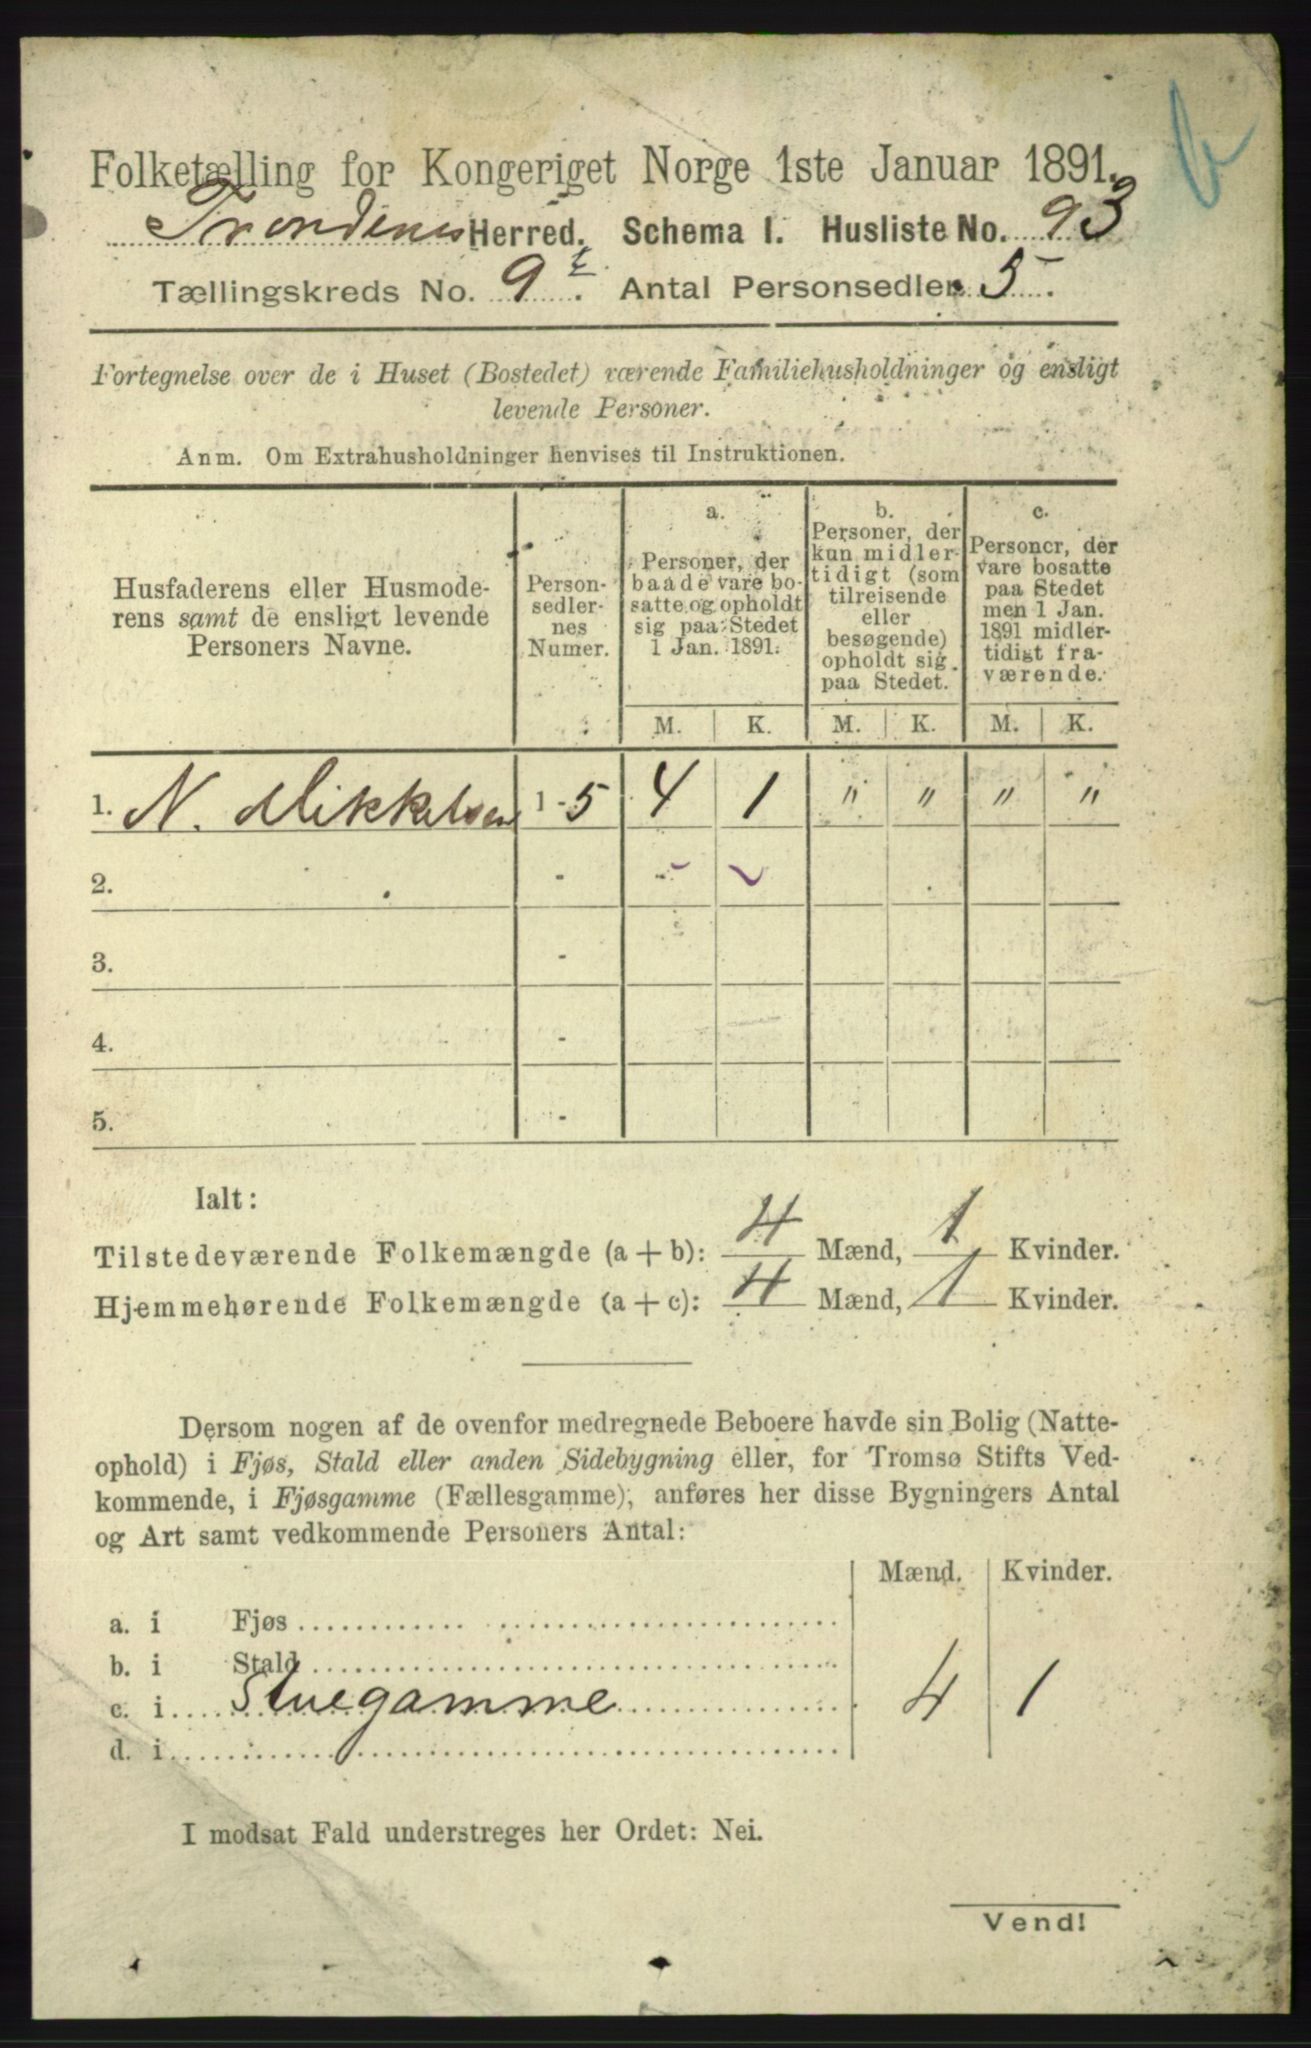 Folketælling for Kongeriget Norge 1ste Januar 1891.
Trondenes Herred. Schema I. Husliste No. 93
Tællingskreds No. 9 . Antal Personsedler 5.
Fortegnelse over de i Huset (Bostedet) værende Familiehusholdninger og ensligt
levende Personer.
Anm. Om Extrahusholdninger henvises til Instruktionen.
Husfaderens eller Husmode-
rens samt de ensligt levende
Personers Navne.
Person-
sedler-
nes
Numer.
a.
Personer, der
baade vare bo-
satte og opholdt
sig paa Stedet
1 Jan. 1891.
b.
Personer, der
kun midler-
tidigt (som
tilreisende
eller
besøgende)
opholdt sig
paa Stedet.
c.
Personer, der
vare bosatte
paa Stedet
men 1 Jan.
1891 midler-
tidigt fra-
værende.
M. K. M. K. M. K.
1. N. Mikkelsen 1 - 5 4 1 " " " "
2. -
3. -
4. -
5. -
Ialt:
Tilstedeværende Folkemængde (a + b): 4 Mænd, 1 Kvinder.
Hjemmehørende Folkemængde (a + c): 4 Mænd, 1 Kvinder.
Dersom nogen af de ovenfor medregnede Beboere havde sin Bolig (Natte-
ophold) i Fjøs, Stald eller anden Sidebygning eller, for Tromsø Stifts Ved-
kommende, i Fjøsgamme (Fællesgamme), anføres her disse Bygningers Antal
og Art samt vedkommende Personers Antal:
Mænd. Kvinder.
a. i Fjøs
b. i Stald
c. i Stuegamme 4 1
d. i
I modsat Fald understreges her Ordet: Nei.
Vend!